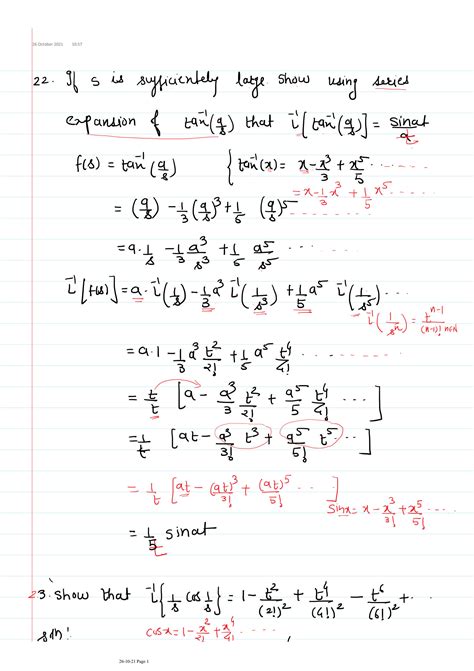 26 October 2021 10:57
22. If s is sufficiently large show using series
expansion of tan⁻¹(a/s) that L⁻¹[tan⁻¹(a/s)] = sinat/t
f(s) = tan⁻¹(a/s) { tan⁻¹(x) = x - x³/3 + x⁵/5 ......
= x - 1/3 x³ + 1/5 x⁵ ......
= (a/s) - 1/3 (a/s)³ + 1/5 (a/s)⁵ ......
= a·1/s - 1/3 a³/s³ + 1/5 a⁵/s⁵ ......
L⁻¹[f(s)] = a·L⁻¹(1/s) - 1/3 a³ L⁻¹(1/s³) + 1/5 a⁵ L⁻¹(1/s⁵) ......
L⁻¹(1/sⁿ) = tⁿ⁻¹/(n-1)! n∈N
= a·1 - 1/3 a³ t²/2! + 1/5 a⁵ t⁴/4! ......
= t/t [a - a³/3 t²/2! + a⁵/5 t⁴/4! ......]
= 1/t [at - a³/3! t³ + a⁵/5! t⁵ ......]
= 1/t [at - (at)³/3! + (at)⁵/5! ......]
Sinx = x - x³/3! + x⁵/5! ......
= 1/t sinat
23. Show that L⁻¹{1/s cos 1/s} = 1 - t²/(2!)² + t⁴/(4!)² - t⁶/(6!)² + ...
soln: cosx = 1 - x²/2! + x⁴/4! ......
26-10-21 Page 1